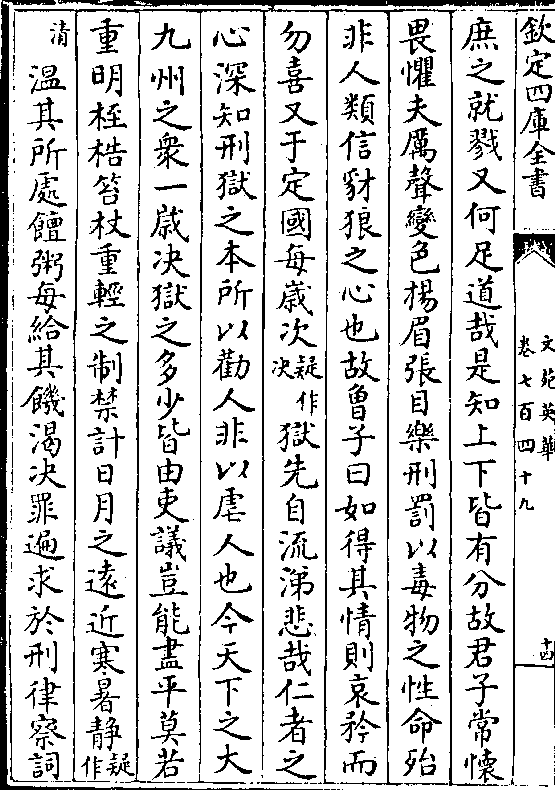 欽定四庫全書
文苑英華
卷七百四十九
十四
庶之就戮又何足道哉是知上下皆有分故君子常懷
畏懼夫厲聲變色楊眉張目樂刑罰以毒物之性命殆
非人類信豺狼之心也故魯子曰如得其情則哀矜而
勿喜又于定國每歳次疑作决獄先自流涕悲哉仁者之
心深知刑獄之本所以勸人非以虐人也今天下之大
九州之衆一歳决獄之多少皆由吏議豈能盡平莫若
重明桎梏笞杖重輕之制禁計日月之遠近寒暑静疑作
清温其所處饘粥每給其饑渴决罪遍求於刑律察詞